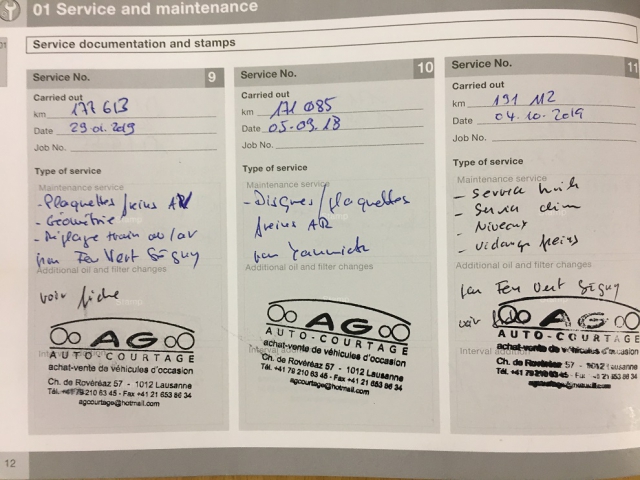 01 Service and maintenance
01
Service documentation and stamps
Service No. 9
Carried out
km 177 613
Date 29.01.2019
Job No.
Type of service
Maintenance service
- Plaquettes freins AV
- Géométrie
- Réglage train av/ar
par Feu Vert Signy
Additional oil and filter changes
voir fiche
AG
AUTO-COURTAGE
achat-vente de véhicules d'occasion
Ch. de Rovéréaz 57 - 1012 Lausanne
Tél. +41 79 210 63 45 - Fax +41 21 653 86 34
agcourtage@hotmail.com
Service No. 10
Carried out
km 171 085
Date 05.09.18
Job No.
Type of service
Maintenance service
- Disques/plaquettes
freins AR
par Yannick
Additional oil and filter changes
AG
AUTO-COURTAGE
achat-vente de véhicules d'occasion
Interval
Ch. de Rovéréaz 57 - 1012 Lausanne
Tél. +41 79 210 63 45 - Fax +41 21 653 86 34
agcourtage@hotmail.com
Service No. 11
Carried out
km 191 112
Date 04.10.2019
Job No.
Type of service
Maintenance service
- Service huile
- Service clim
- Niveaux
- vidange freins
Additional oil and filter changes
par Feu Vert Signy
voir
AG
AUTO-COURTAGE
achat-vente de véhicules d'occasion
Interval
Ch. de Rovéréaz 57 - 1012 Lausanne
Tél. +41 79 210 63 45 - Fax +41 21 653 86 34
12